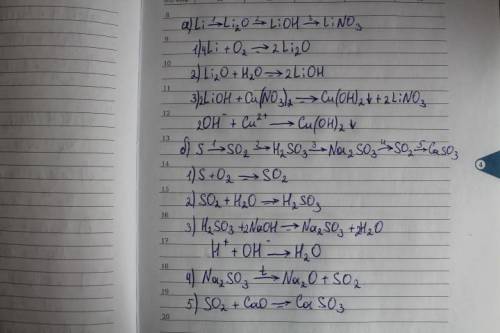 a) Li → Li₂O → LiOH →³ LiNO₃
1) 4Li + O₂ → 2Li₂O
2) Li₂O + H₂O → 2LiOH
3) 2LiOH + Cu(NO₃)₂ → Cu(OH)₂↓ + 2LiNO₃
2OH⁻ + Cu²⁺ → Cu(OH)₂↓
б) S →¹ SO₂ →² H₂SO₃ →³ Na₂SO₃ →⁴ SO₂ →⁵ CaSO₃
1) S + O₂ → SO₂
2) SO₂ + H₂O → H₂SO₃
3) H₂SO₃ + 2NaOH → Na₂SO₃ + 2H₂O
H⁺ + OH⁻ → H₂O
4) Na₂SO₃ →ᵗ Na₂O + SO₂
5) SO₂ + CaO → CaSO₃
8
9
10
11
12
13
14
15
16
17
18
19
20
4